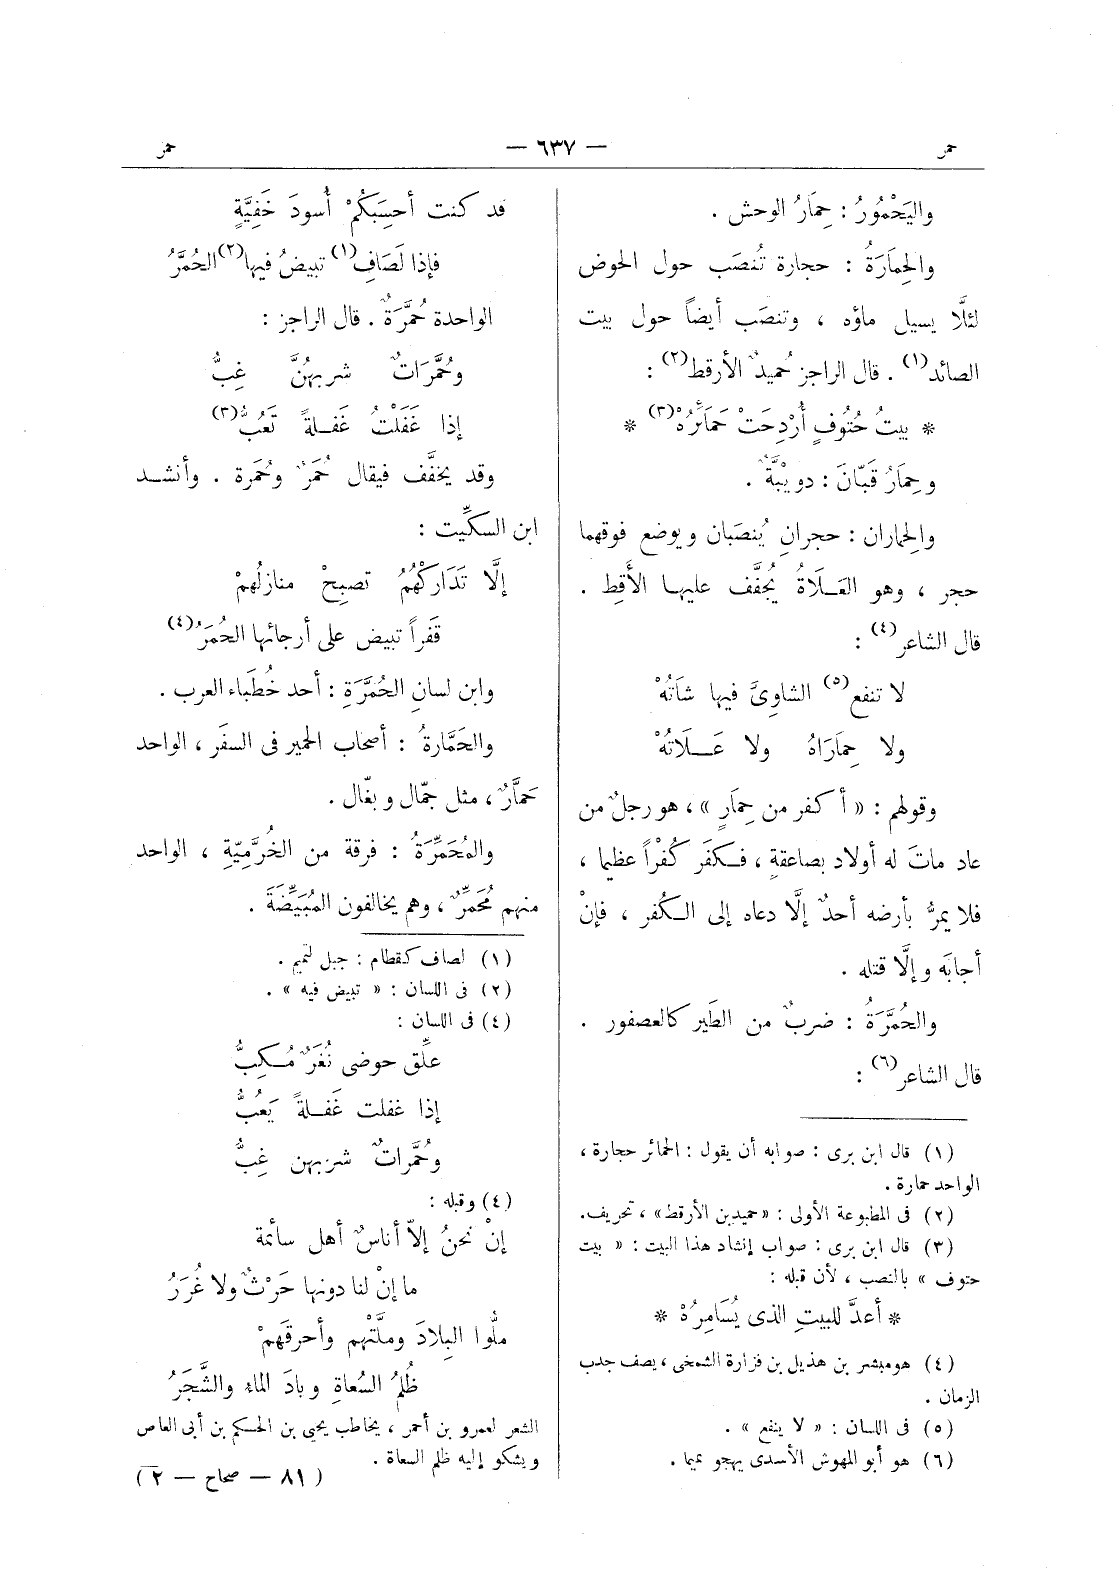 حمر
— ٦٣٧ —
حمر
واليَحْمُورُ : حِمَارُ الوحش .
والِحمَارَةُ : حجارة تُنصَب حول الحوض
لئلَّا يسيل ماؤه ، وتنصَب أيضاً حول بيت
الصائد(١) . قال الراجز حُميدٌ الأرقط(٢) :
* بيتُ حُتُوفٍ أُرْدِحَتْ حَمَائرُهْ(٣) *
وحِمَارُ قَبّانَ : دويْبَّةٌ .
والِحماران : حجرانِ يُنصَبان ويوضع فوقهما
حجر ، وهو العَلَاةُ يُجَفَّف عليها الأَقِط .
قال الشاعر(٤) :
لا تنفع(٥) الشاوِىَّ فيها شاَتُهْ
ولا حِمَارَاهُ ولا عَلَاتُهْ
وقولهم : « أكفر من حِمَارٍ » ، هو رجلٌ من
عاد ماتَ له أولاد بصاعقةٍ ، فكفَر كُفْراً عظيما ،
فلا يمرُّ بأرضه أحدٌ إلَّا دعاه إلى الكُفر ، فإنْ
أجابَه وإلَّا قتله .
والحُمَّرَةُ : ضربٌ من الطَير كالعصفور .
قال الشاعر(٦) :
(١) قال ابن برى : صوابه أن يقول : الحمائر حجارة ،
الواحد حمارة .
(٢) فى المطبوعة الأولى : «حميدبن الأرقط» ، تحريف.
(٣) قال ابن برى : صواب إنشاد هذا البيت : « بيت
حتوف » بالنصب ، لأن قبله :
* أعدَّ للبيتِ الذى يُسَامِرُهْ *
(٤) هومبشر بن هذيل بن فزارة الشمخى ، يصف جدب
الزمان .
(٥) فى اللسان : « لا ينفع » .
(٦) هو أبو المهوش الأسدى يهجو تميما .
قد كنت أحسِبَكمْ أُسودَ خَفِيَّةٍ
فإذا لَصَافِ(١) تبيضُ فيها(٢) الحُمَّرُ
الواحدة حُمَّرَةٌ . قال الراجز :
وحُمَّرَاتٌ شربهنَّ غِبُّ
إذا غَفَلَتْ غَفلةً تَعُبُّ(٣)
وقد يخفَّف فيقال حُمَرٌ وحُمَرة . وأنشد
ابن السكِّيت :
إلَّا تَدَارَكْهُمُ تصبِحْ منازلُهمْ
قَفراً تبيض على أرجائها الحُمَرُ(٤)
وابن لسانِ الحُمَّرَةِ : أحد خُطَباء العرب .
والحَمَّارةُ : أصحاب الحمير فى السفَر ، الواحد
حَمَّارٌ ، مثل جمّال وبغّال .
والمُحَمِّرَةُ : فرقة من الخُرَّمِيّةِ ، الواحد
منهم مُحَمِّرٌ ، وهم يخالفون المُبَيِّضَةَ .
(١) لصاف كقطام : جبل لتميم .
(٢) فى اللسان : « تبيض فيه » .
(٤) فى اللسان :
علِّق حوضى نُغَرٌ مُكِبُّ
إذا غفلت غَفلةً يَعُبُّ
وحُمَّراتٌ شربهن غِبُّ
(٤) وقبله :
إنْ نحنُ إلاّ أناسٌ أهل سأئمة
ما إنْ لنا دونها حَرْثٌ ولا غُرَرُ
ملُّوا البِلادَ وملَّتْهم وأحرقَهمْ
ظُلمُ السُعاةِ وبادَ الماء والشَّجَرُ
الشعر لعمرو بن أحمر ، يخاطب يحيى بن الحكم بن أبى العاص
ويشكو إليه ظلم السعاة .
( ٨١ — صحاح — ٢ )